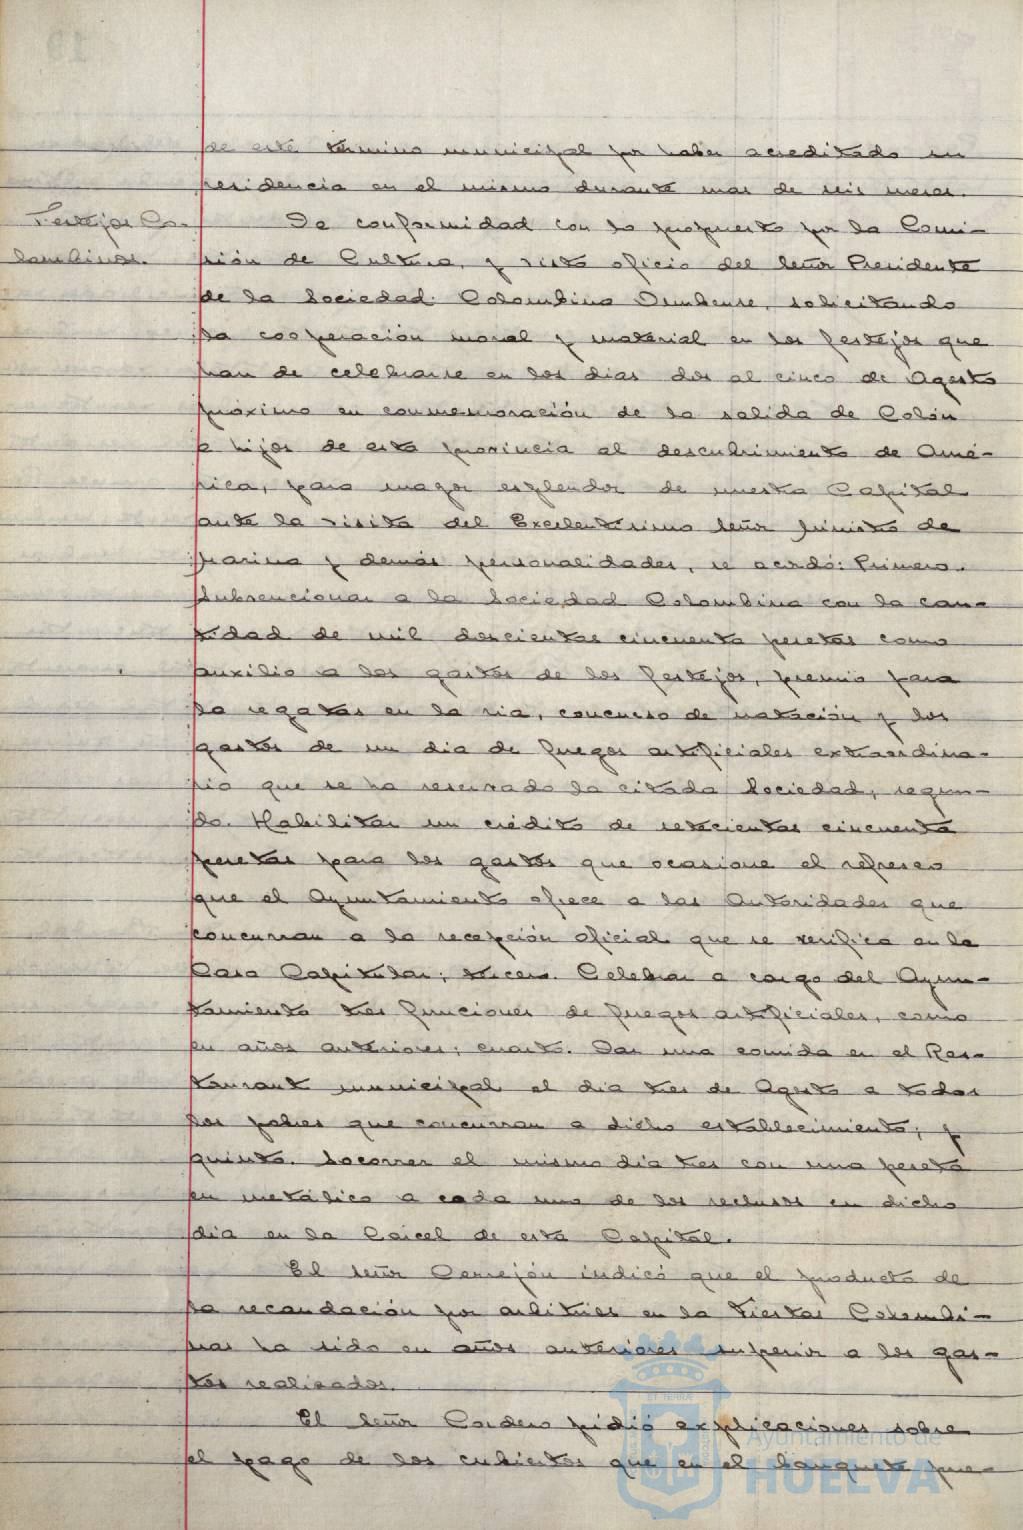 de este término municipal por haber acreditado su
residencia en el mismo durante mas de seis meses.
Festejos Co-
lombinos.
De conformidad con lo propuesto por la Comi-
sión de Cultura, y visto oficio del Señor Presidente
de la Sociedad Colombina Onubense, solicitando
la cooperación moral y material en los festejos que
han de celebrarse en los dias dos al cinco de Agosto
próximo en conmemoración de la salida de Colón
e hijos de esta provincia al descubrimiento de Amé-
rica, para mayor esplendor de nuestra Capital
ante la visita del Excelentísimo Señor Ministro de
Marina y demás personalidades, se acordó: Primero.
Subvencionar a la Sociedad Colombina con la can-
tidad de mil doscientas cincuenta pesetas como
auxilio a los gastos de los festejos, premio para
la regatas en la ria, concurso de natación y los
gastos de un dia de fuegos artificiales extraordina-
rio que se ha reservado la citada Sociedad; segun-
do. Habilitar un crédito de setecientas cincuenta
pesetas para los gastos que ocasione el refresco
que el Ayuntamiento ofrece a las Autoridades que
concurran a la recepción oficial que se verifica en la
Casa Capitular; tercero. Celebrar a cargo del Ayun-
tamiento tres funciones de fuegos artificiales, como
en años anteriores; cuarto. Dar una comida en el Res-
taurant municipal el dia tres de Agosto a todos
los pobres que concurran a dicho establecimiento; y
quinto. Socorrer el mismo dia tres con una peseta
en metálico a cada uno de los reclusos en dicho
dia en la Cárcel de esta Capital.
El Señor Cerrejón indicó que el producto de
la recaudación por arbitrios en la Fiestas Colombi-
nas ha sido en años anteriores superior a los gas-
tos realizados.
El Señor Cordero pidió explicaciones sobre
el pago de los cubiertos que en el banquete pue-
Ayuntamiento de
HUELVA